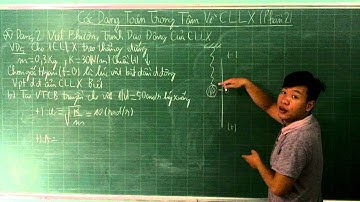 Các Dạng Toán Trọng Tâm Về CLLX (Phần 2)
Dạng 2. Viết Phương Trình Dao Động Của CLLX
VD5 Cho 1 CLLX treo thẳng đứng
m = 0,3kg, K = 30N/m
Chọn gốc thời gian (t=0) là lúc vật bắt đầu d.động
Viết pt d.đ của CLLX Biết
b) Tại VTCB truyền cho vật = 50cm/s
+) ω = √K/m = 10 (rad/s)
+) A =
(-)
(+)